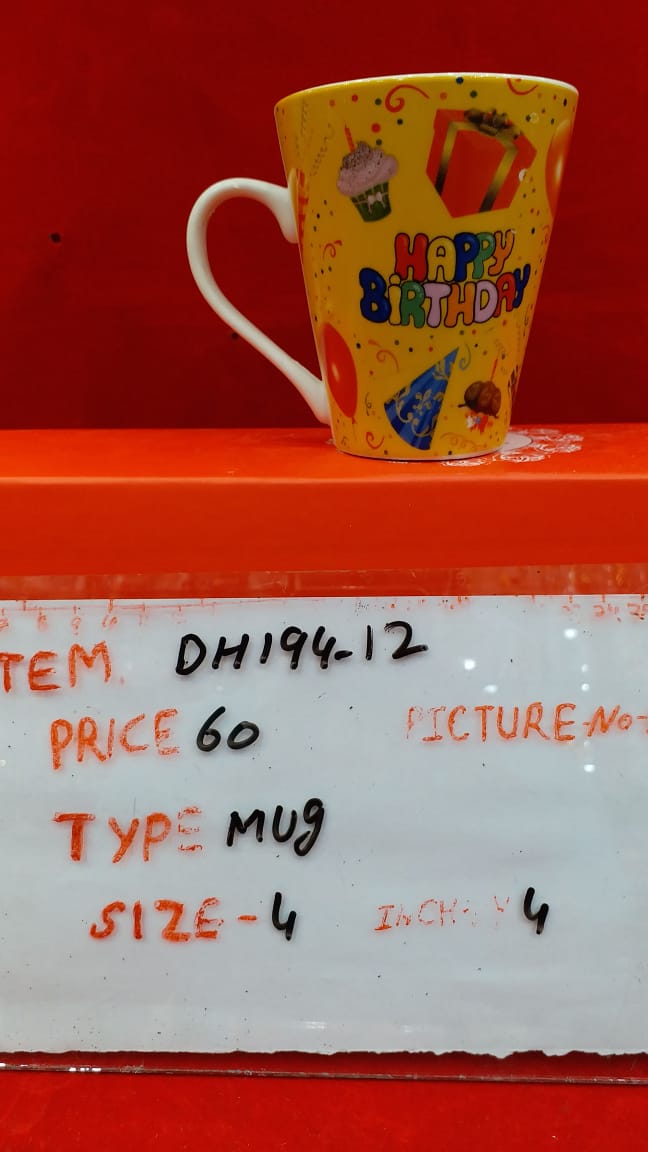 HAPPY
BIRTHDAY
ITEM. DH194-12
PRICE 60 PICTURE-NO-
TYPE MUg
SIZE-4 INCH 4